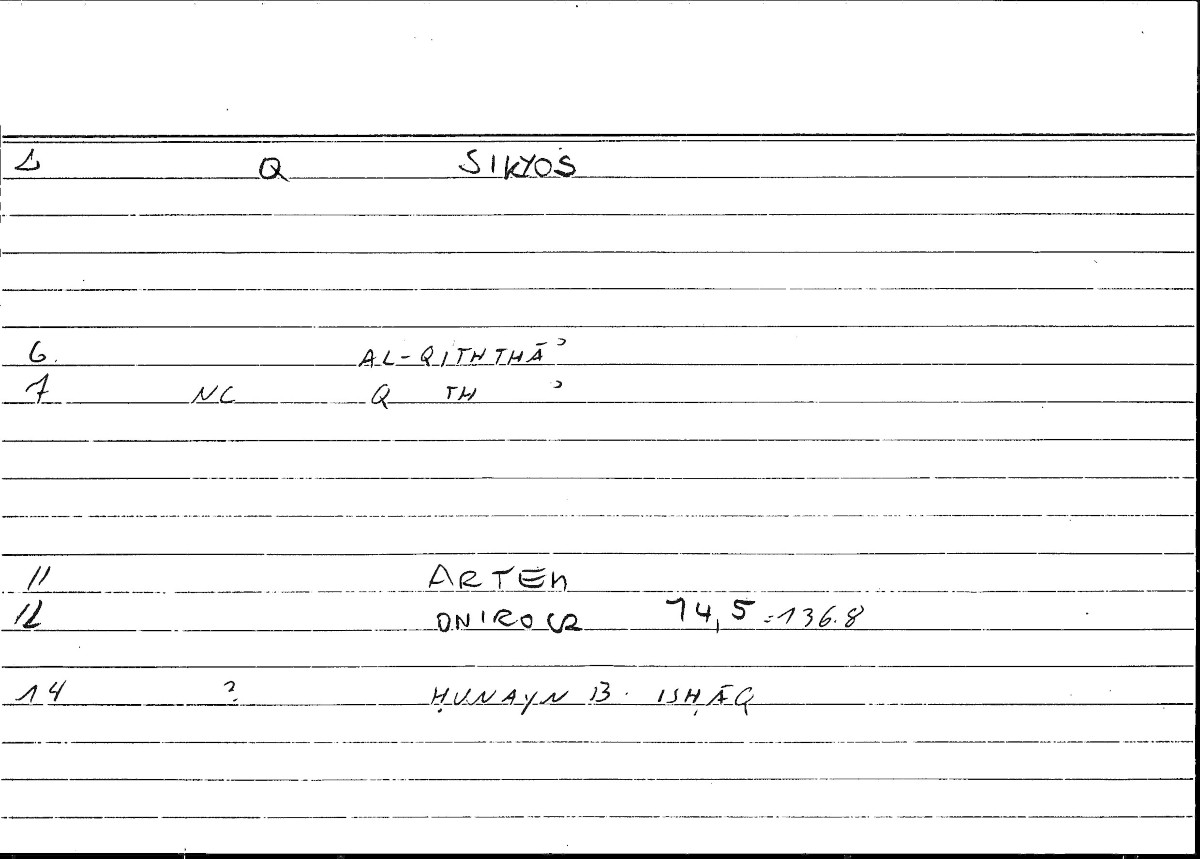 1 Q SIKYOS
6. AL-QITHTHĀʾ
7 NC Q TH ʾ
11 ARTEM
12 ONIROCR 74,5 = 136.8
14 ? ḤUNAYN B. ISḤĀQ